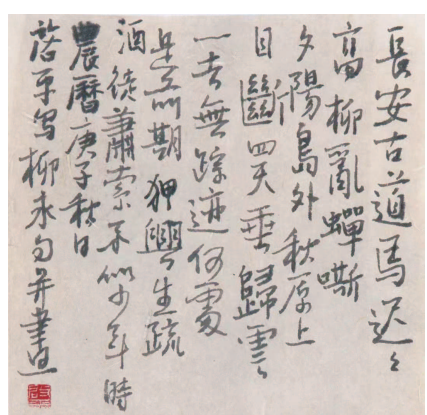 長安古道馬迟々
高柳亂蟬嘶
夕陽島外秋原上
目斷四天垂歸雲
一去無踪迹何處
是前期狎興生疏
酒徒蕭索不似少年時
農曆庚子秋日
柳永句并書